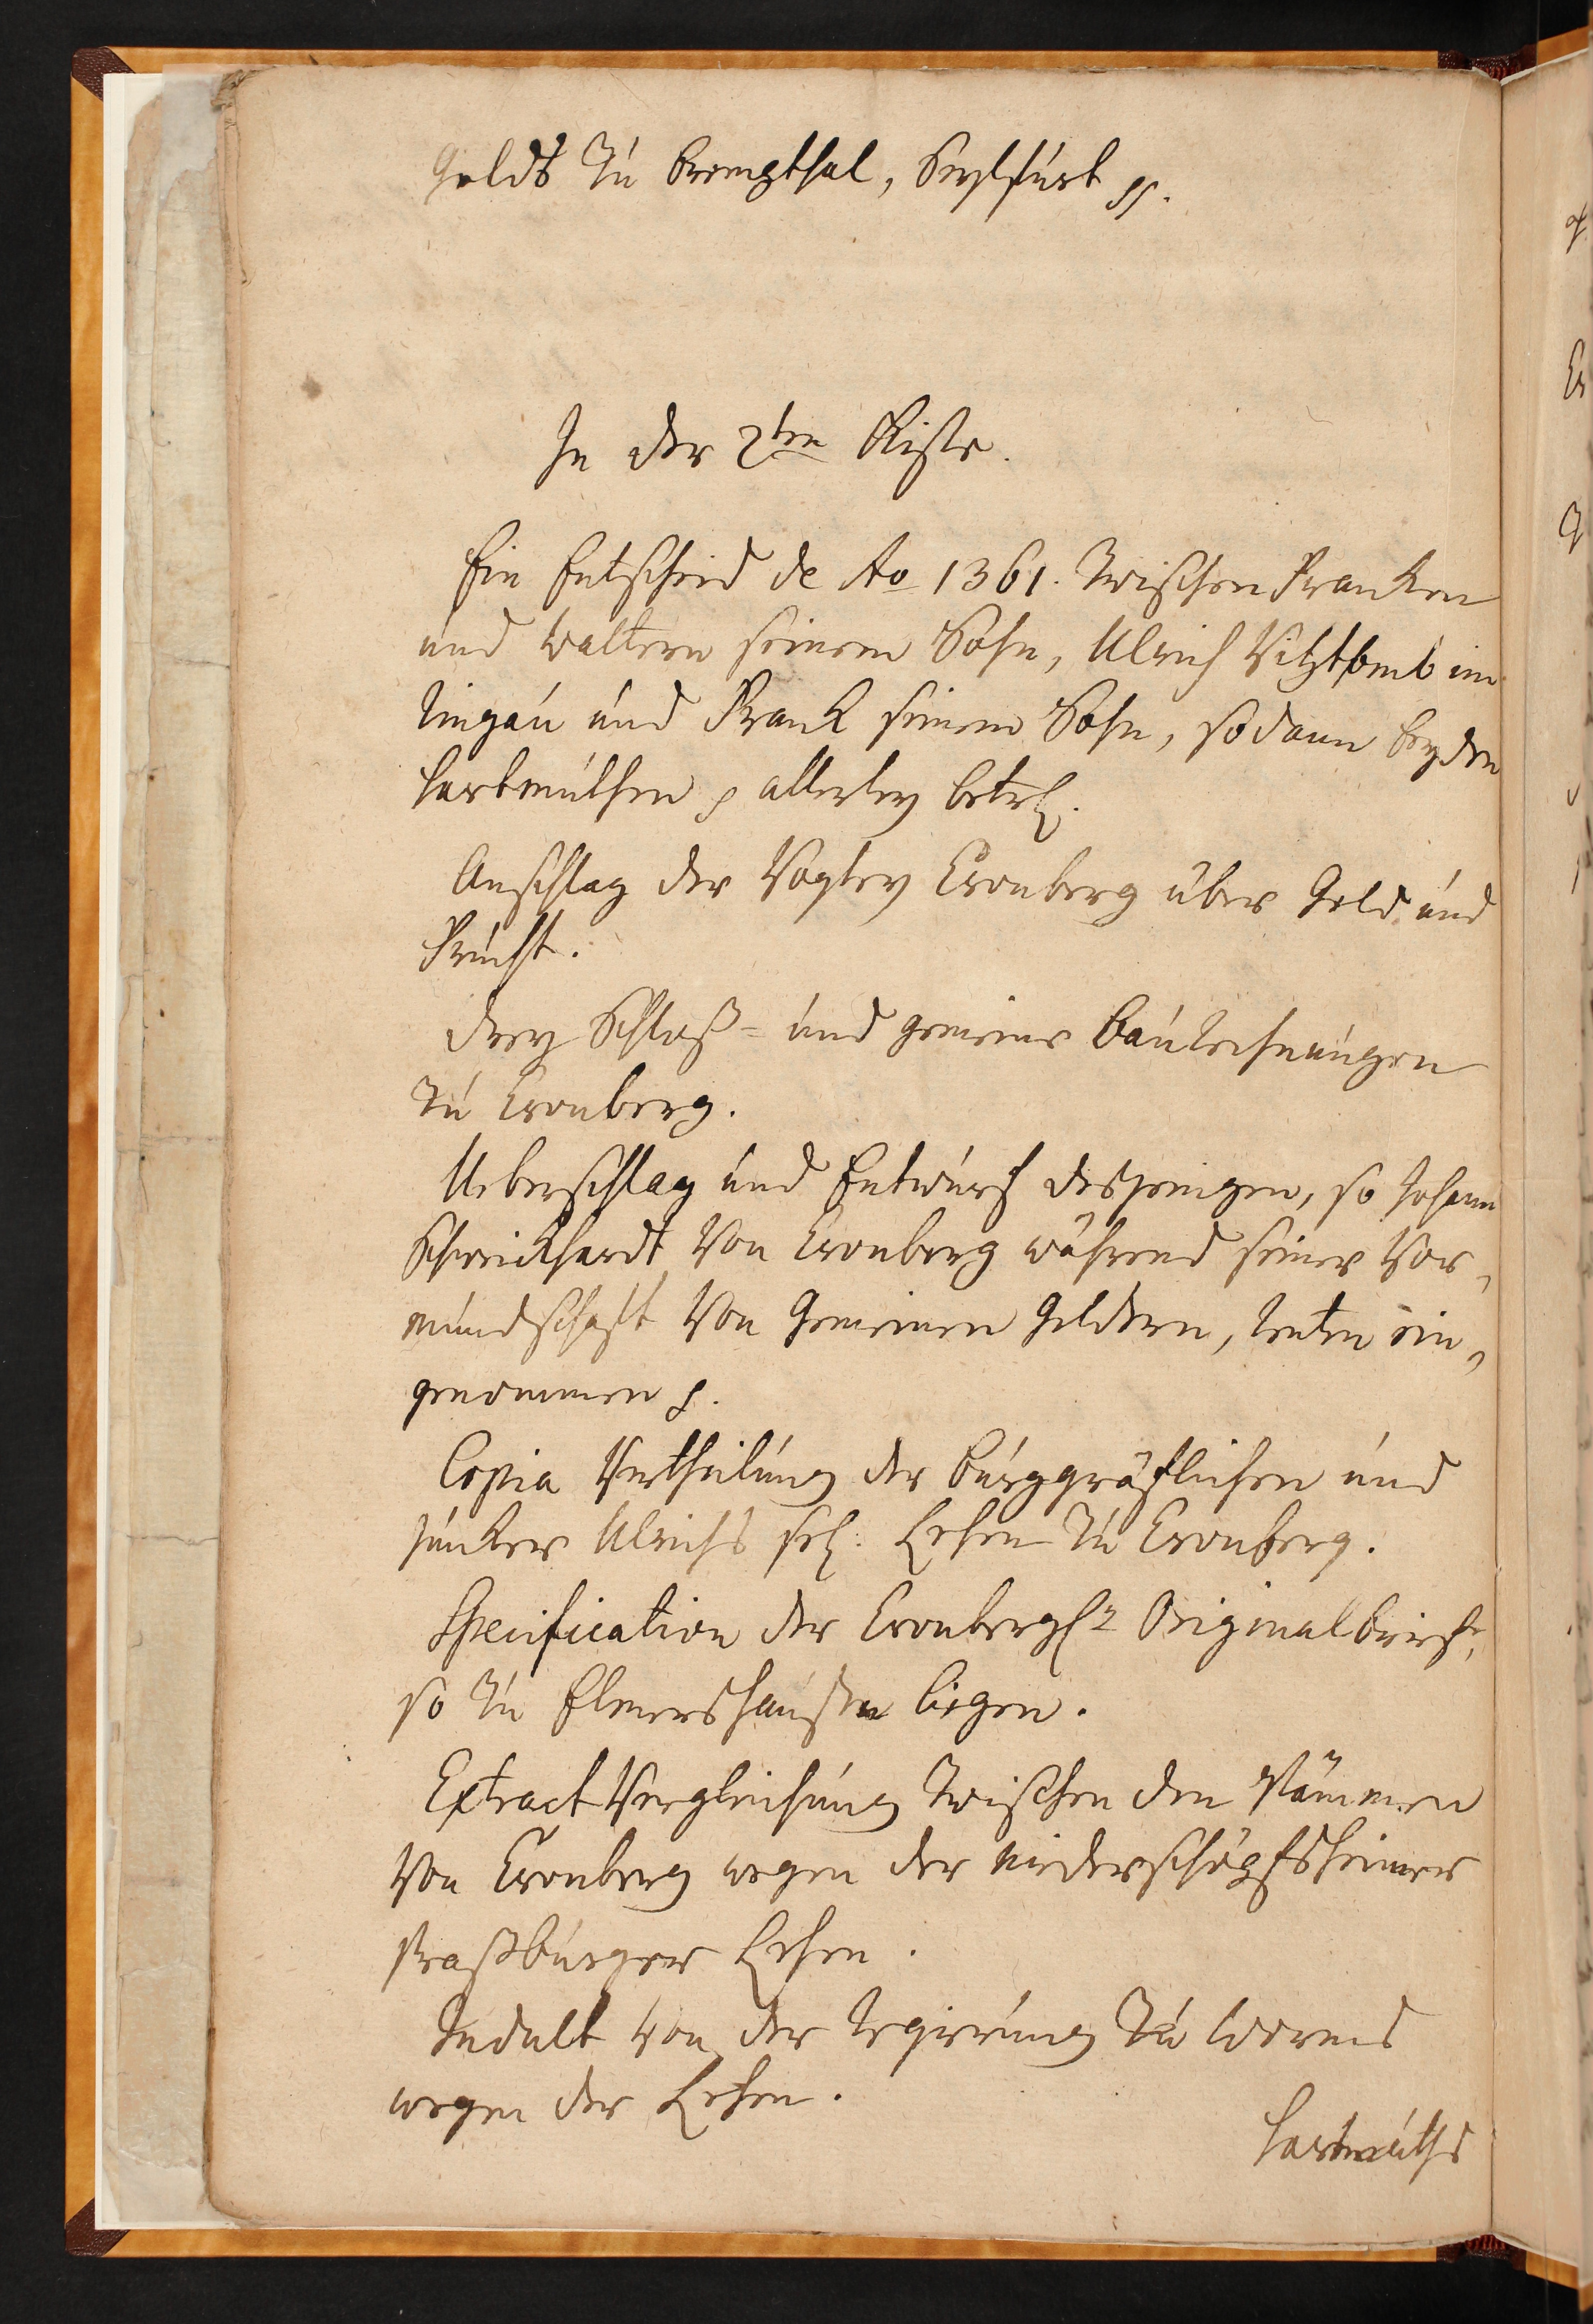 Geldt zu Bremzthal, Seylfurt pp.
In der 2ten Kiste.
Ein Entscheid de Ao 1361. zwischen Franken
und Waltern seinem Sohn, Ulrich Vitzthumb im
Ringau und Frank seinem Sohn, sodann beyden
Hartmuthen p allerley betrf.
Anschlag der Vogtey Cronberg über Geld und
Frucht.
Drey Schloß- und gemeine Baurechnungen
zu Cronberg.
Ueberschlag und Entwurf desjenigen, so Johann
Schweickhardt von Cronberg während seiner Vor-
mundschaft von Gemeinen Geldern, Renten ein-
genommen p.
Copia Vertheilung der burggräflichen und
Junker Ulrichs sel: Lehen zu Cronberg.
Specification der Cronbergl. Originalbriefe,
so zu Elmershausen liegen.
Extract Vergleichung zwischen den Stämmen
von Cronberg wegen der Niederschöpfsheimer
straßburger Lehen.
Indult von der Regierung zu Worms
wegen der Lehen.
Hartmuths